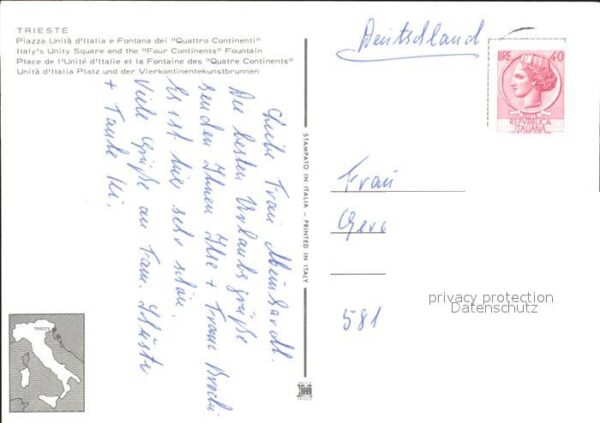 TRIESTE
Piazza Unità d'Italia e Fontana dei "Quattro Continenti"
Italy's Unity Square and the "Four Continents" Fountain
Place de l'Unité d'Italie et la Fontaine des "Quatre Continents"
Unità d'Italia Platz und der Vierkontinentekunstbrunnen
Liebe Frau Meinhardt.
Die besten Urlaubsgrüße
senden Ihnen Ilse + Franz
Es ist hier sehr schön.
Viele Grüße an Fam.
+ Tante
STAMPATO IN ITALIA - PRINTED IN ITALY
Deutschland
LIRE 40
REPVBBLICA
ITALIANA
Frau
Gera
581
privacy protection
Datenschutz
TRIESTE